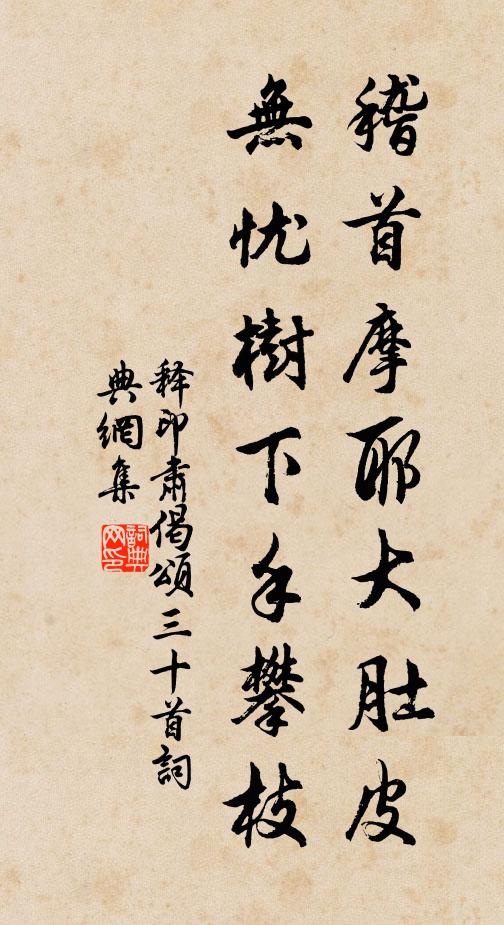 稽首摩耶大肚皮
無忧樹下手攀枝
释印肅偈頌三十首詞
典網集
詞典網印